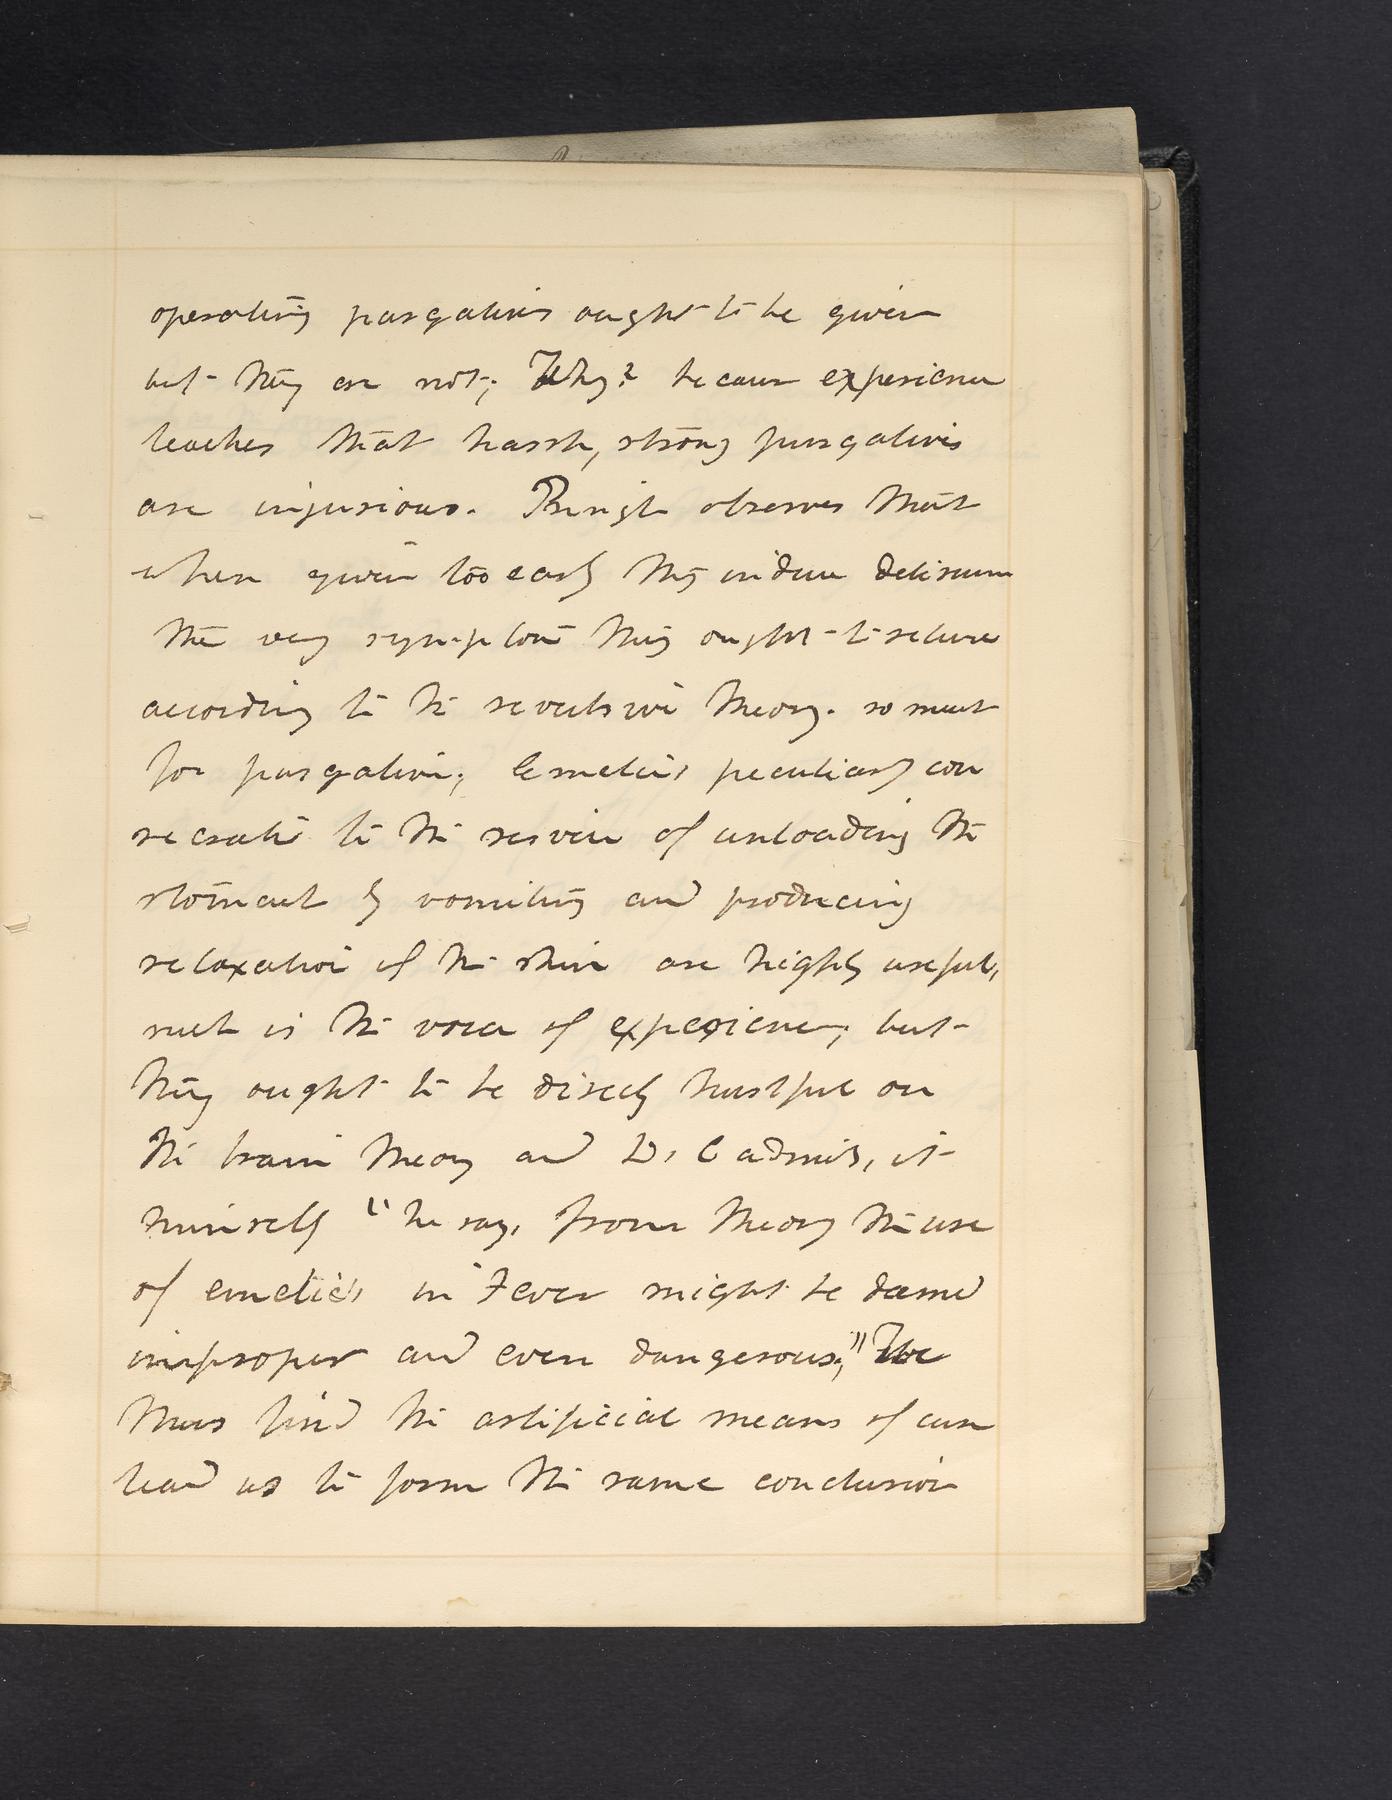 operating purgatives ought to be given
but they are not; Why? because experience
teaches that harsh, strong purgatives
are injurious. Pringle observes that
when given too early they induce delirium
the very symptom they ought to relieve
according to the revulsive theory. so much
for purgative; Emetics peculiarly con
secrate to the service of unloading the
stomach by vomiting and producing
relaxation of the skin are highly useful,
such is the voice of experience; but
they ought to be direcly hurtful on
the brain theory and Dr C admits, it
himself "he says, from theory the use
of emetics in Fever might be damd
improper and even dangerous;" We
thus find the artificial means of cure
lead us to form the same conclusion